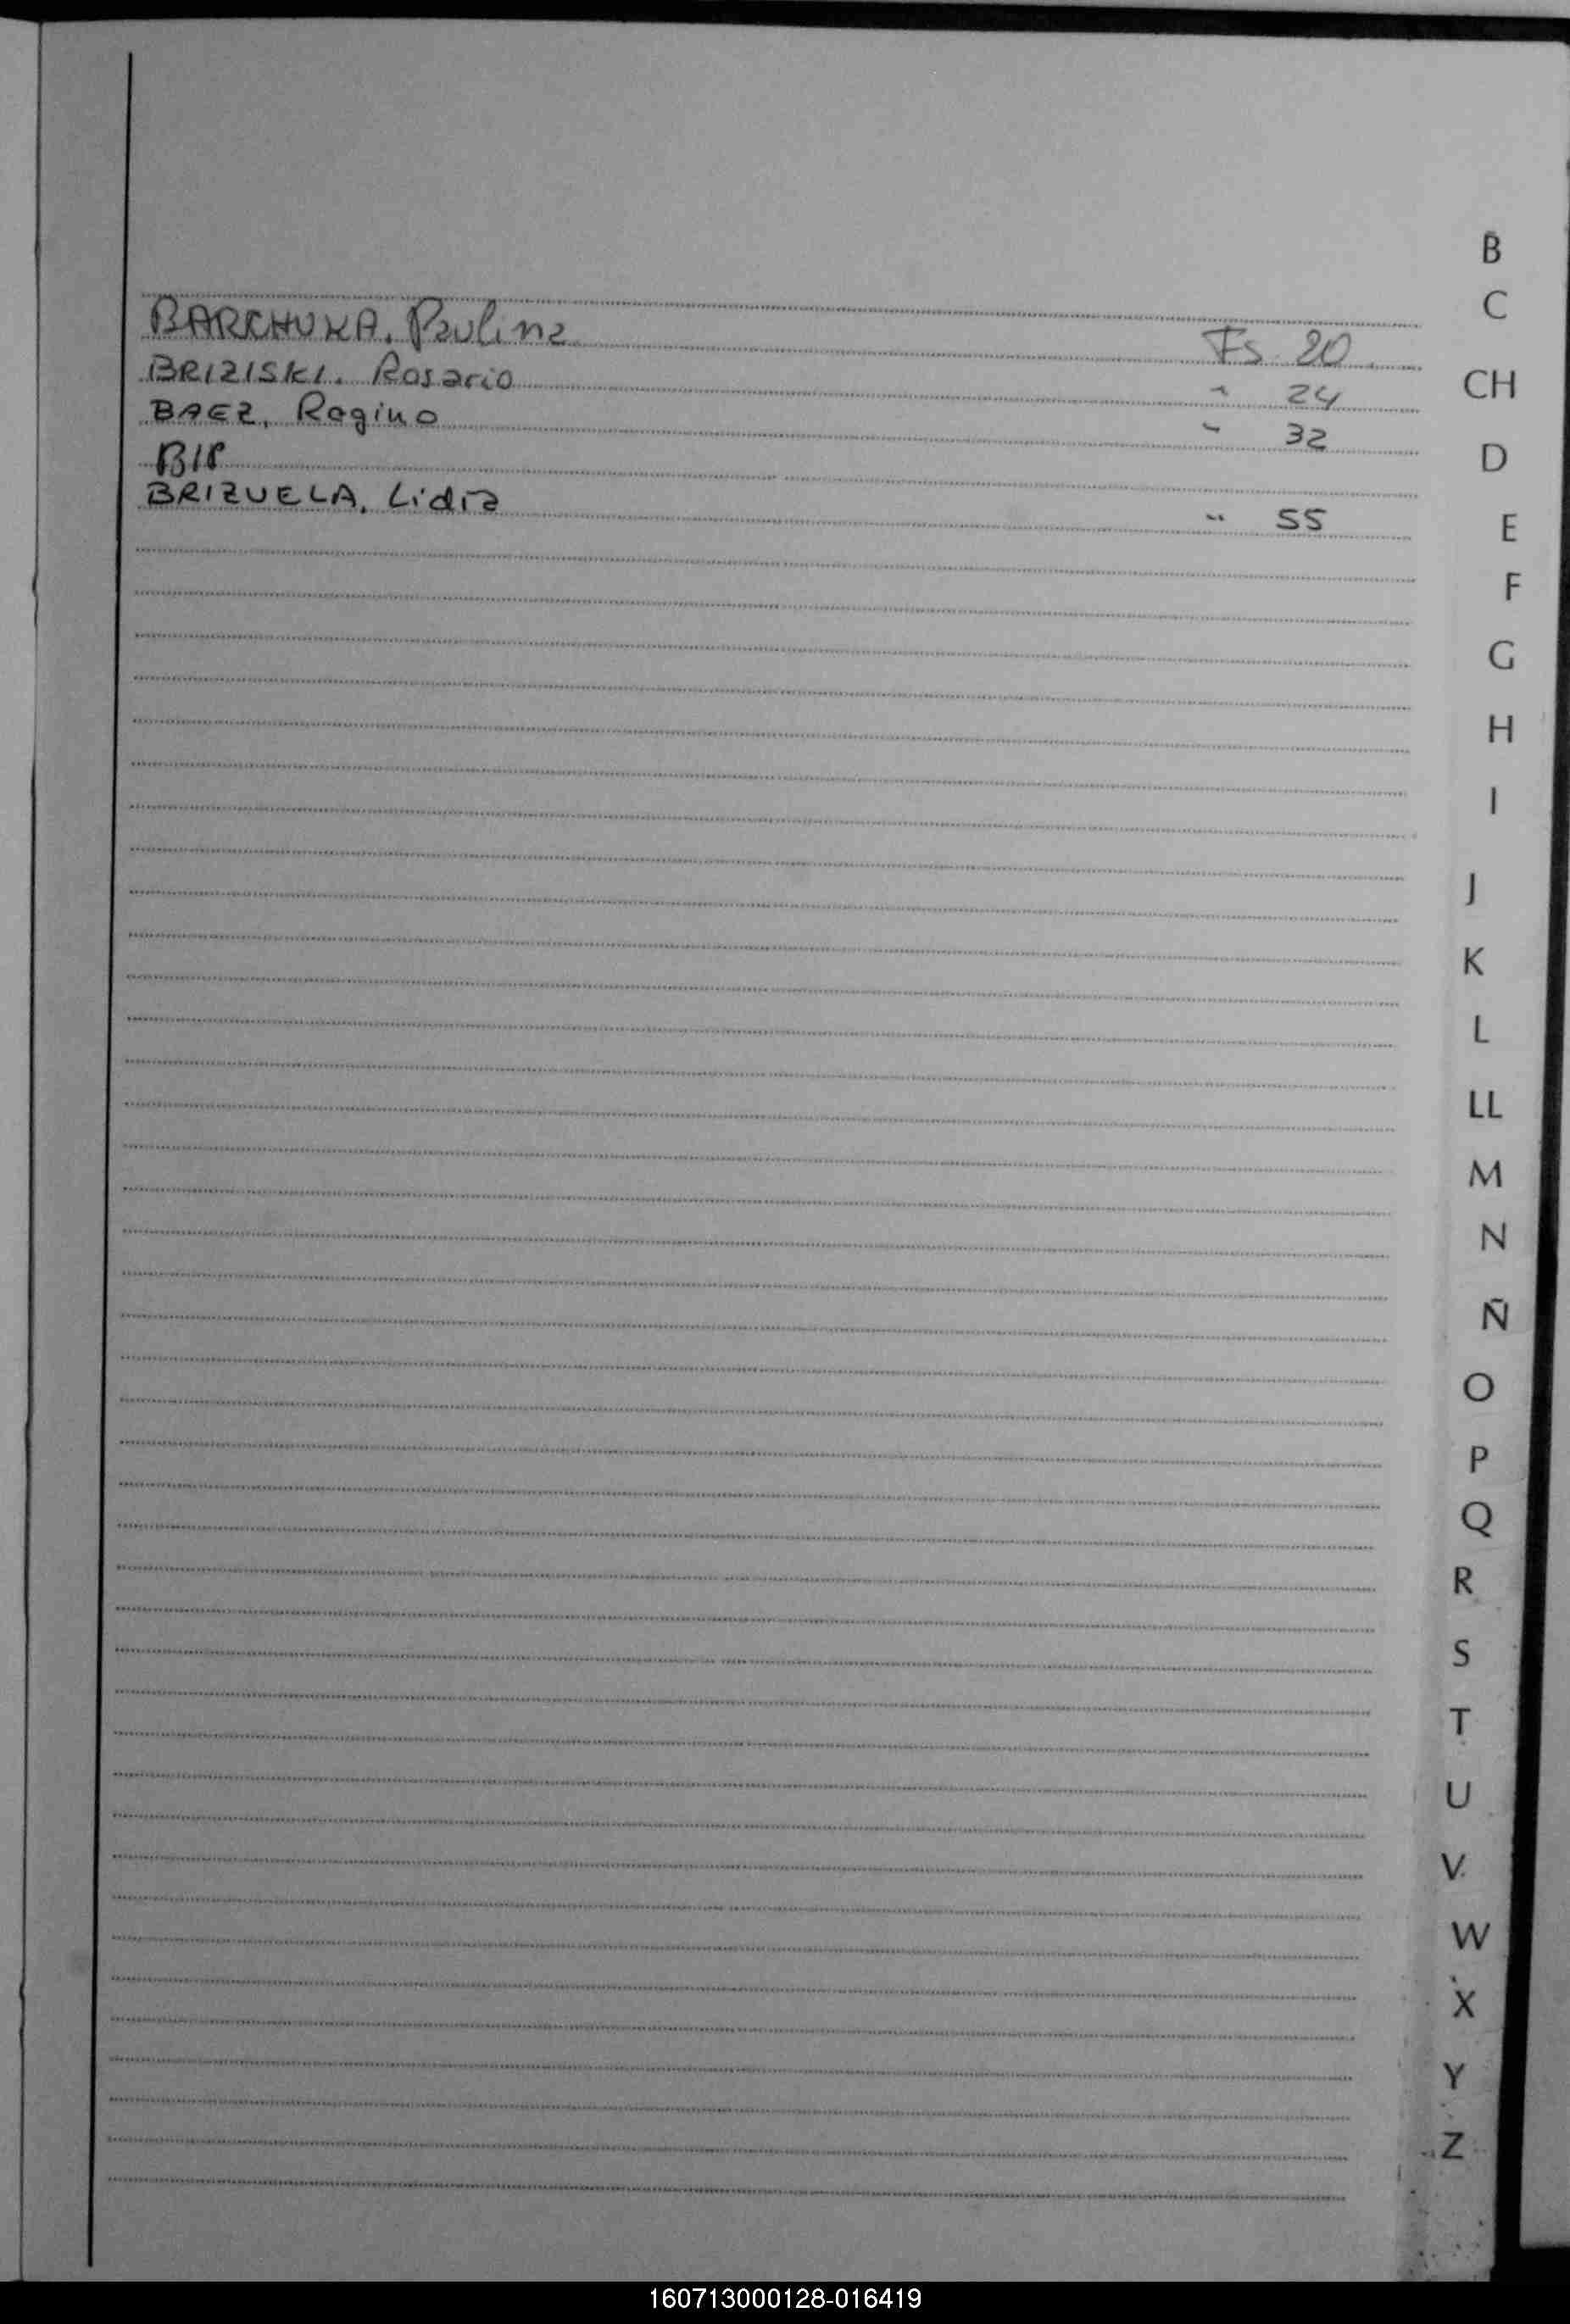 BARCHUKA, Paulina Fs. 20.
BRIZISKI. Rosario " 24
BAEZ, Regino " 32
BIP
BRIZUELA, Lidia " 55
B
C
CH
D
E
F
G
H
I
J
K
L
LL
M
N
Ñ
O
P
Q
R
S
T
U
V
W
X
Y
Z
160713000128-016419